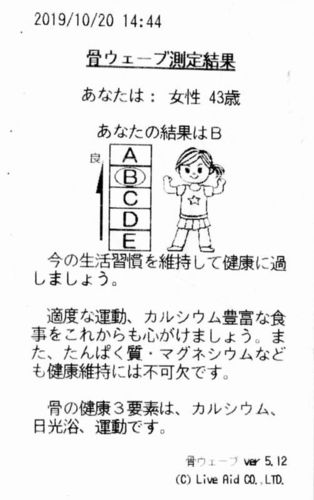 2019/10/20 14:44
骨ウェーブ測定結果
あなたは： 女性 43歳
あなたの結果はB
良
A
B
C
D
E
今の生活習慣を維持して健康に過
しましょう。
適度な運動、カルシウム豊富な食
事をこれからも心がけましょう。ま
た、たんぱく質・マグネシウムなど
も健康維持には不可欠です。
骨の健康３要素は、カルシウム、
日光浴、運動です。
骨ウェーブ ver 5.12
(C) Live Aid CO.,LTD.